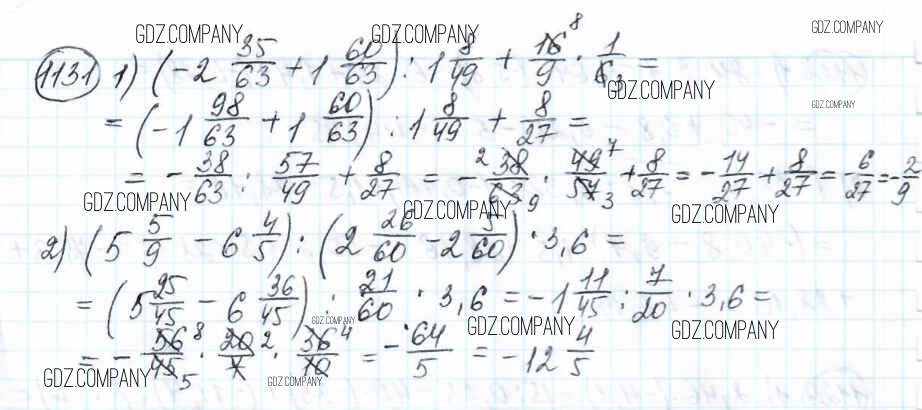 GDZ.COMPANY GDZ.COMPANY GDZ.COMPANY
1131 1) (-2 35/63 + 1 60/63) : 1 8/49 + 16/9 8 · 1/6 3 =
GDZ.COMPANY GDZ.COMPANY
= (-1 98/63 + 1 60/63) : 1 8/49 + 8/27 =
= - 38/63 : 57/49 + 8/27 = - 2 38/63 9 · 49 7/57 3 + 8/27 = - 14/27 + 8/27 = - 6/27 = - 2/9
GDZ.COMPANY GDZ.COMPANY GDZ.COMPANY
2) (5 5/9 - 6 4/5) : (2 26/60 - 2 5/60) · 3,6 =
= (5 25/45 - 6 36/45) : 21/60 · 3,6 = -1 11/45 : 7/20 · 3,6 =
GDZ.COMPANY GDZ.COMPANY GDZ.COMPANY
= - 56 8/45 5 · 20 2/7 · 36 4/10 = - 64/5 = -12 4/5
GDZ.COMPANY GDZ.COMPANY